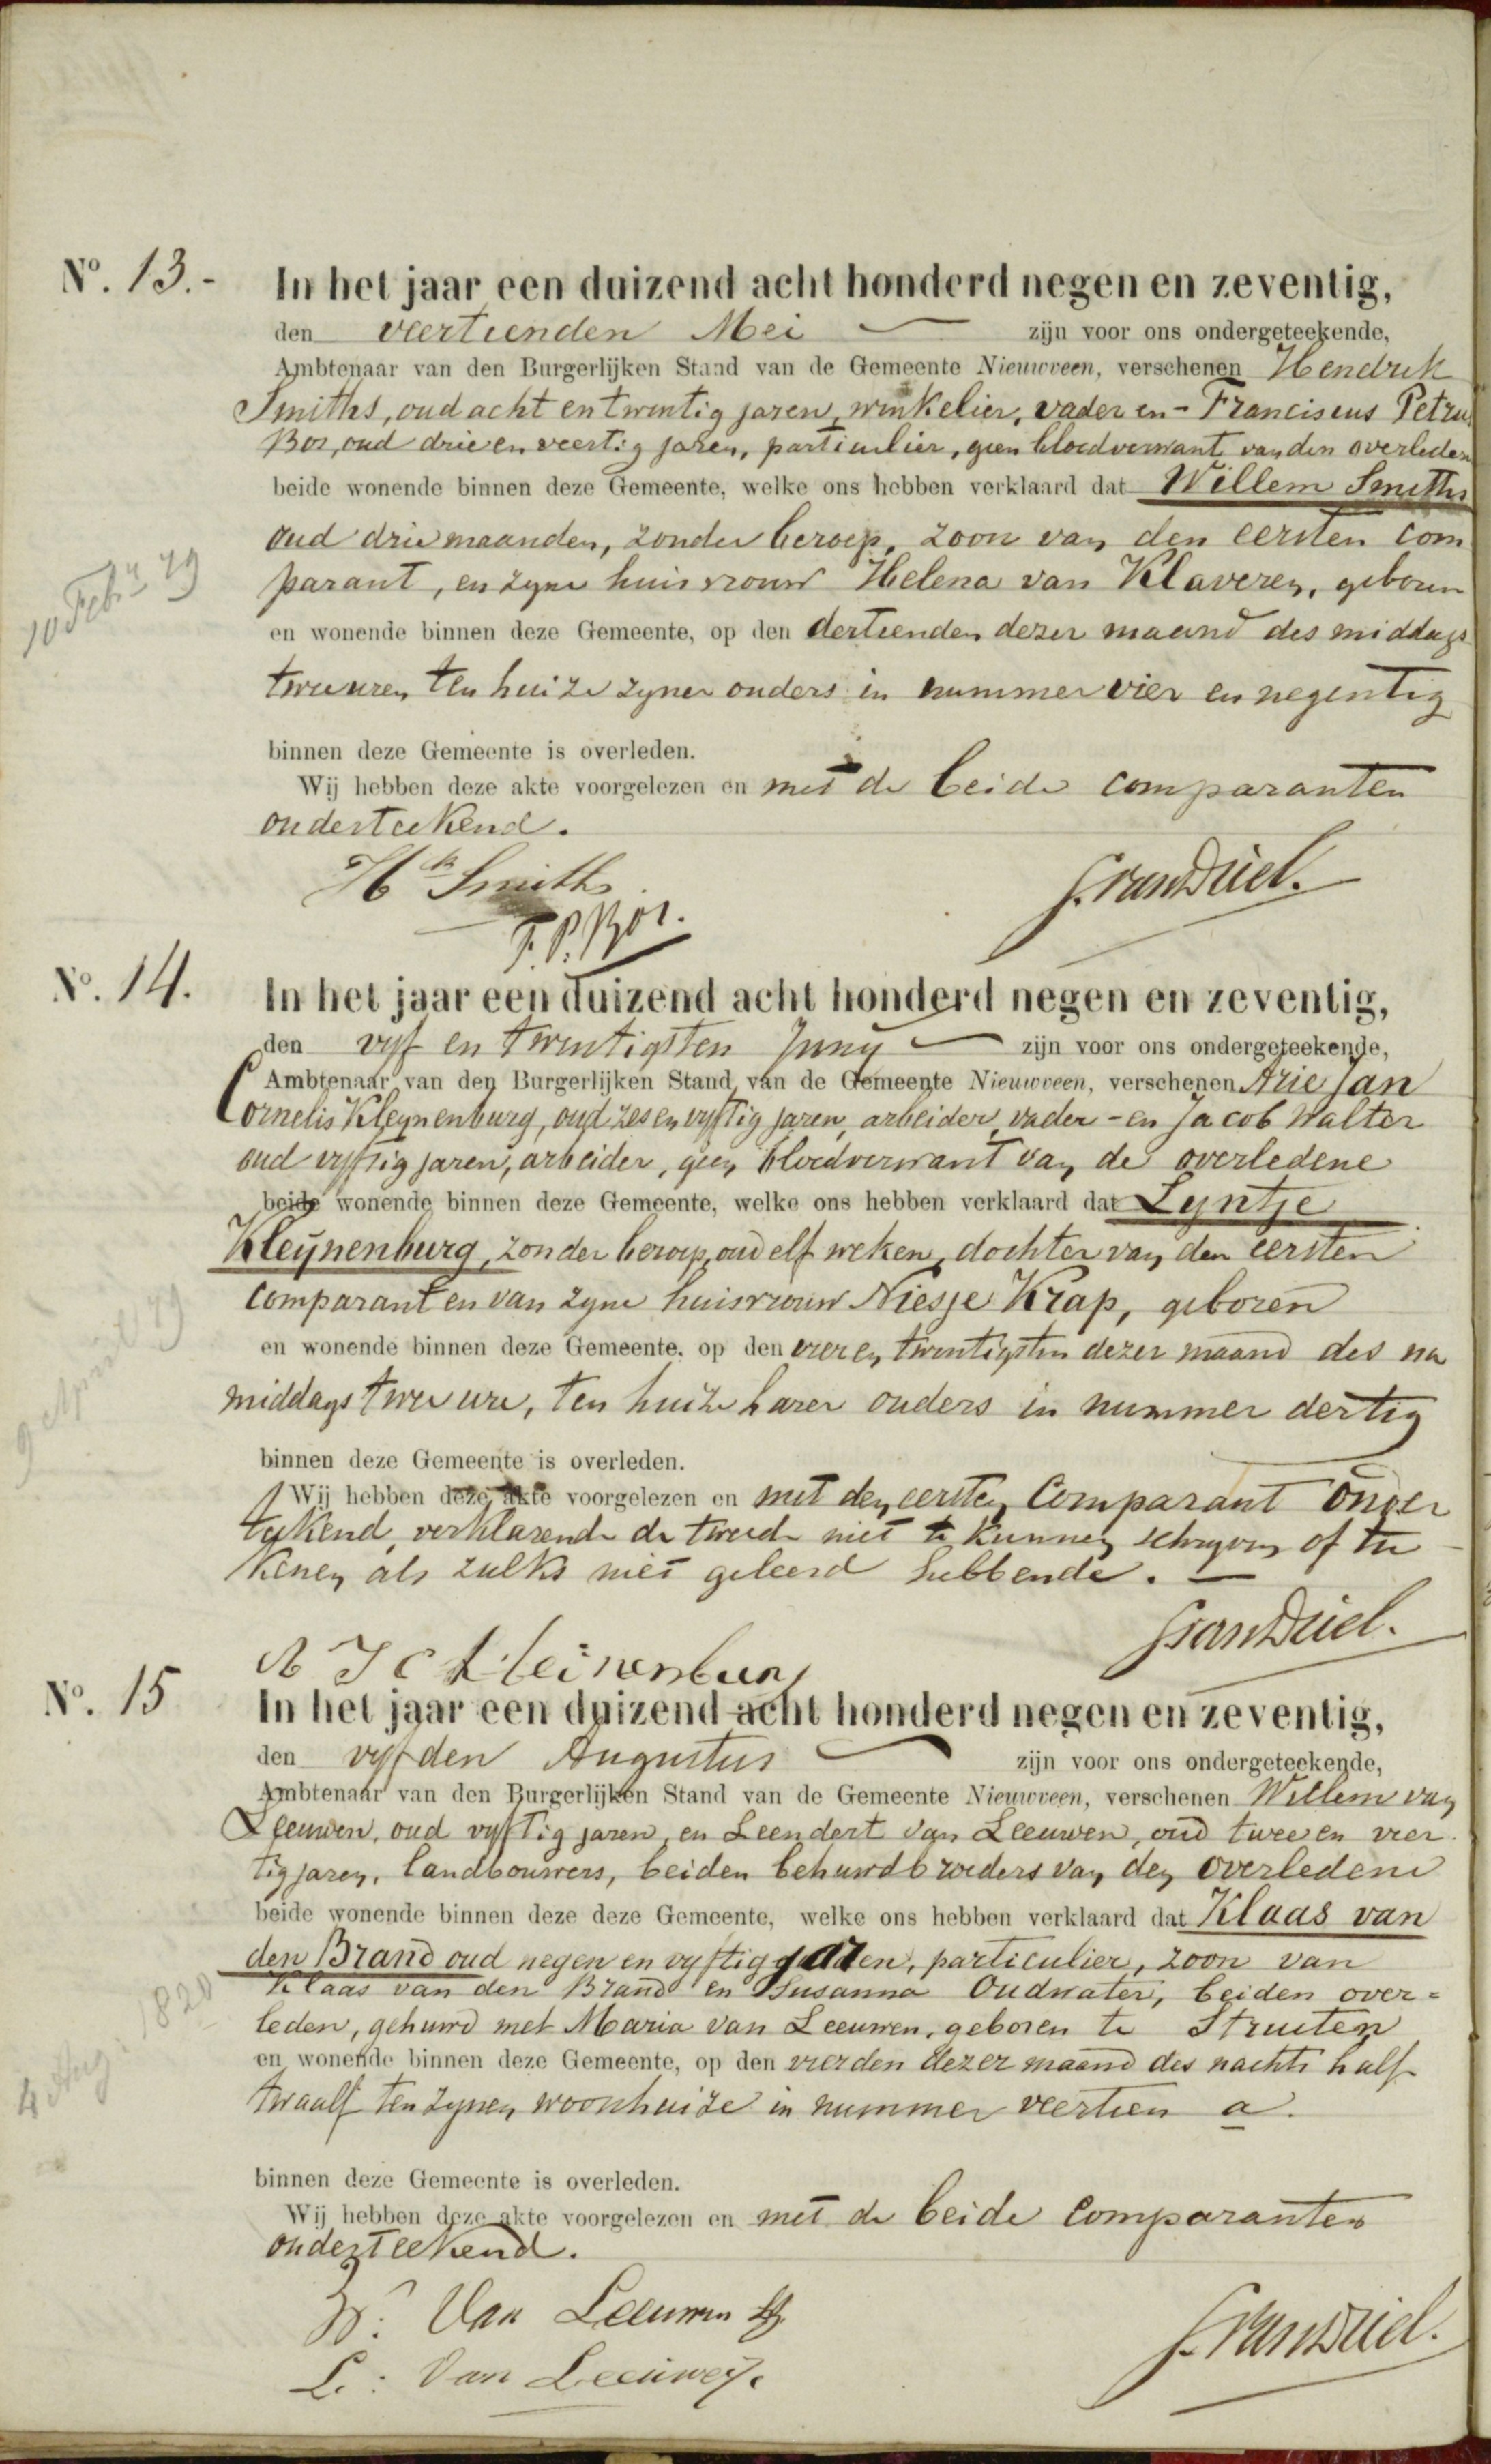 Nº. 13.-
In het jaar een duizend acht honderd negen en zeventig,
den veertienden Mei zijn voor ons ondergeteekende,
Ambtenaar van den Burgerlijken Stand van de Gemeente Nieuwveen, verschenen Hendrik
Smiths, oud acht en twintig jaren, winkelier, vader en - Franciscus Petrus
Bos, oud drie en veertig jaren, particulier, geen bloedverwant van den overleden
beide wonende binnen deze Gemeente, welke ons hebben verklaard dat Willem Smiths
oud drie maanden, zonder beroep, zoon van den eersten com
parant, en zyne huisvrouw Helena van Klaveren, geboren
10 Feb. 79
en wonende binnen deze Gemeente, op den dertienden dezer maand des middags
twee uren ten huize zyner ouders in nummer vier en negentig
binnen deze Gemeente is overleden.
Wij hebben deze akte voorgelezen en met de beide comparanten
onderteekend.
Hk Smiths
F. P. Bos.
Nº. 14.
In het jaar een duizend acht honderd negen en zeventig,
den vyf en twintigsten Juny zijn voor ons ondergeteekende,
Ambtenaar van den Burgerlijken Stand van de Gemeente Nieuwveen, verschenen Arie Jan
Cornelis Kleynenburg, oud zes en vyftig jaren, arbeider, vader - en Jacob Walter
oud vyftig jaren, arbeider, geen bloedverwant van de overledene
beide wonende binnen deze Gemeente, welke ons hebben verklaard dat Lyntje
Kleÿnenburg, zonder beroep, oud elf weken, dochter van den eersten
comparant en van zyne huisvrouw Niesje Krap, geboren
9 April 79
en wonende binnen deze Gemeente, op den vier en twintigsten dezer maand des na
middags twee ure, ten huize harer ouders in nummer dertig
binnen deze Gemeente is overleden.
Wij hebben deze akte voorgelezen en met den eersten Comparant onder
tekend, verklarende de tweede niet te kunnen schryven of tee
kenen als zulks niet geleerd hebbende.
A J C Kleinenburg
Nº. 15
In het jaar een duizend acht honderd negen en zeventig,
den vyfden Augustus zijn voor ons ondergeteekende,
Ambtenaar van den Burgerlijken Stand van de Gemeente Nieuwveen, verschenen Willem van
Leeuwen, oud vyftig jaren, en Leendert van Leeuwen, oud twee en veer
tig jaren, landbouwers, beiden behuwdbroeders van den overledene
beide wonende binnen deze deze Gemeente, welke ons hebben verklaard dat Klaas van
den Brand oud negen en vyftig jaren, particulier, zoon van
Klaas van den Brand en Susanna Oudwater, beiden over=
leden, gehuwd met Maria van Leeuwen, geboren te Struiten
4 Aug. 1820
en wonende binnen deze Gemeente, op den vierden dezer maand des nachts half
twaalf ten zynen woonhuize in nummer veertien a.
binnen deze Gemeente is overleden.
Wij hebben deze akte voorgelezen en met de beide Comparanten
onderteekend.
W: Van Leeuwen
L: Van Leeuwen.